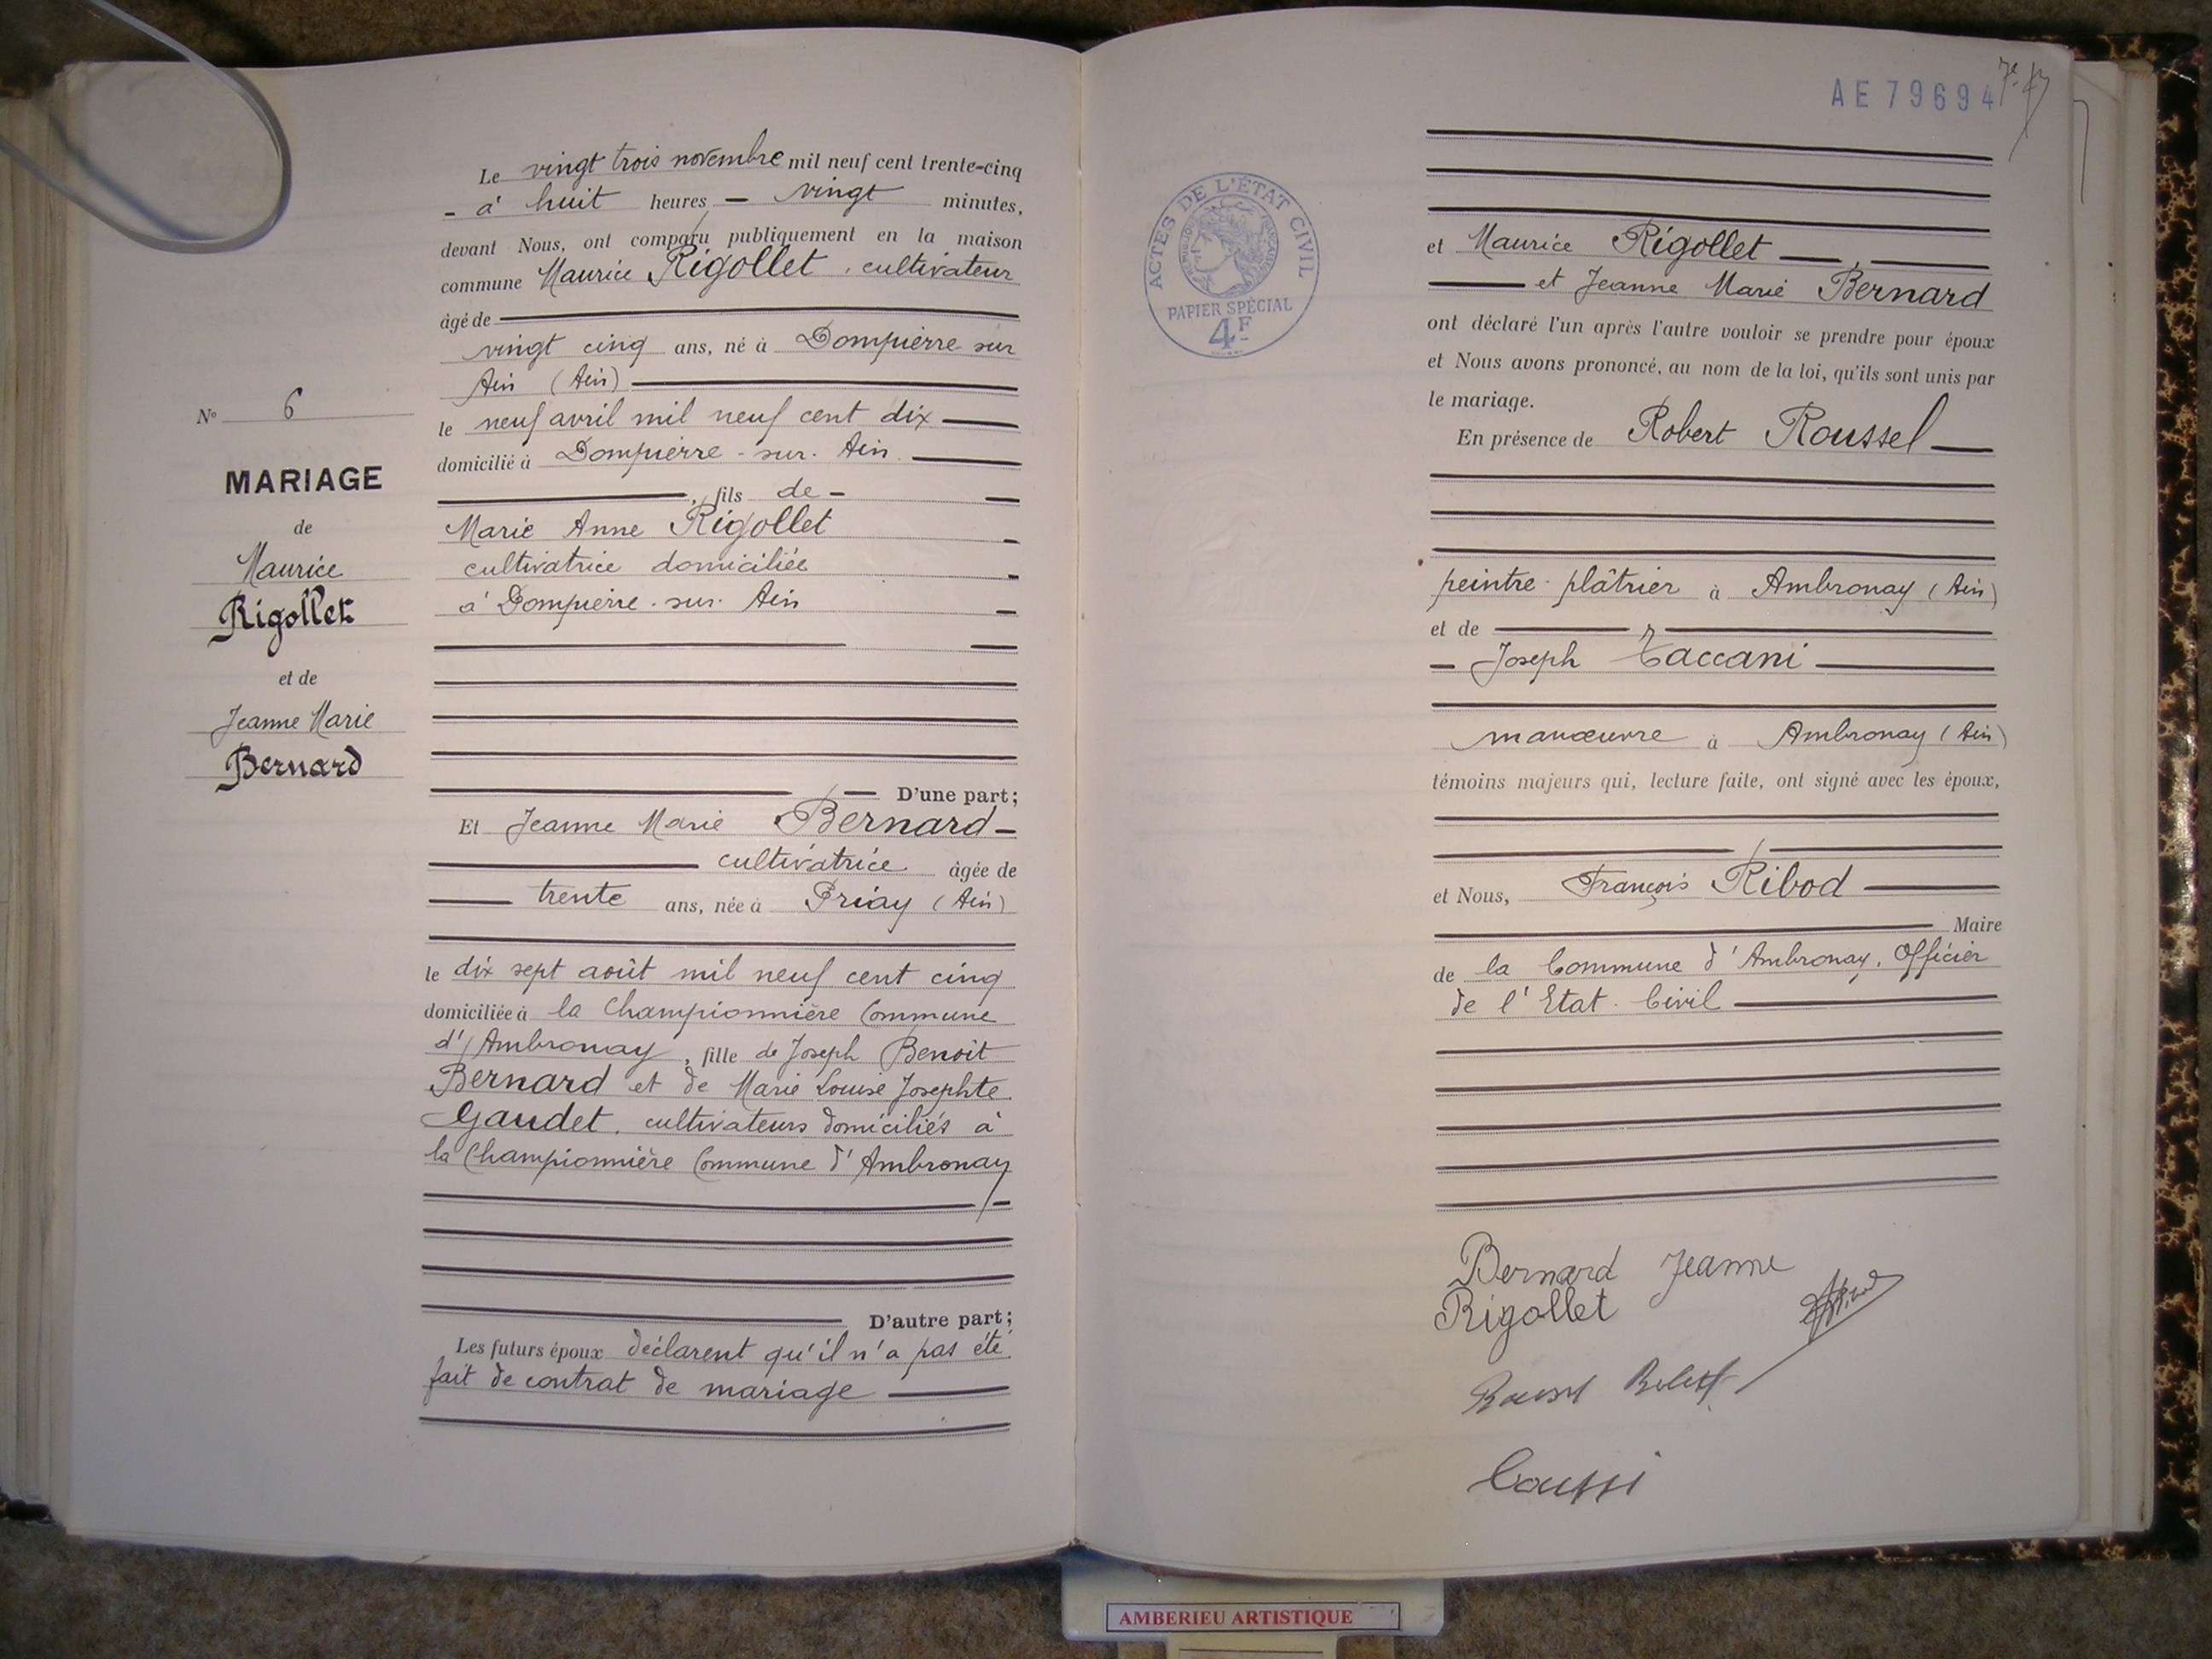 Le vingt trois novembre mil neuf cent trente-cinq
- à huit heures - vingt minutes,
devant Nous, ont comparu publiquement en la maison
commune Maurice Rigollet, cultivateur
âgé de
vingt cinq ans, né à Dompierre sur
Ain (Ain)
le neuf avril mil neuf cent dix
domicilié à Dompierre-sur-Ain
, fils de -
Marie Anne Rigollet
cultivatrice domiciliée
à Dompierre-sur-Ain
N° 6
MARIAGE
de
Maurice
Rigollet
et de
Jeanne Marie
Bernard
D'une part;
Et Jeanne Marie Bernard -
cultivatrice âgée de
trente ans, née à Priay (Ain)
le dix sept août mil neuf cent cinq
domiciliée à la Championnière Commune
d'Ambronay, fille de Joseph Benoit
Bernard et de Marie Louise Josephte
Gaudet, cultivateurs domiciliés à
la Championnière Commune d'Ambronay
D'autre part;
Les futurs époux déclarent qu'il n'a pas été
fait de contrat de mariage
AE79694
ACTES DE L'ÉTAT CIVIL
RÉPUBLIQUE FRANÇAISE
PAPIER SPÉCIAL
4F
et Maurice Rigollet
et Jeanne Marie Bernard
ont déclaré l'un après l'autre vouloir se prendre pour époux
et Nous avons prononcé, au nom de la loi, qu'ils sont unis par
le mariage.
En présence de Robert Roussel
peintre-plâtrier à Ambronay (Ain)
et de
- Joseph Taccani
manœuvre à Ambronay (Ain)
témoins majeurs qui, lecture faite, ont signé avec les époux,
et Nous, François Ribod
Maire
de la Commune d'Ambronay, Officier
de l'Etat-Civil
Bernard Jeanne
Rigollet
AMBERIEU ARTISTIQUE